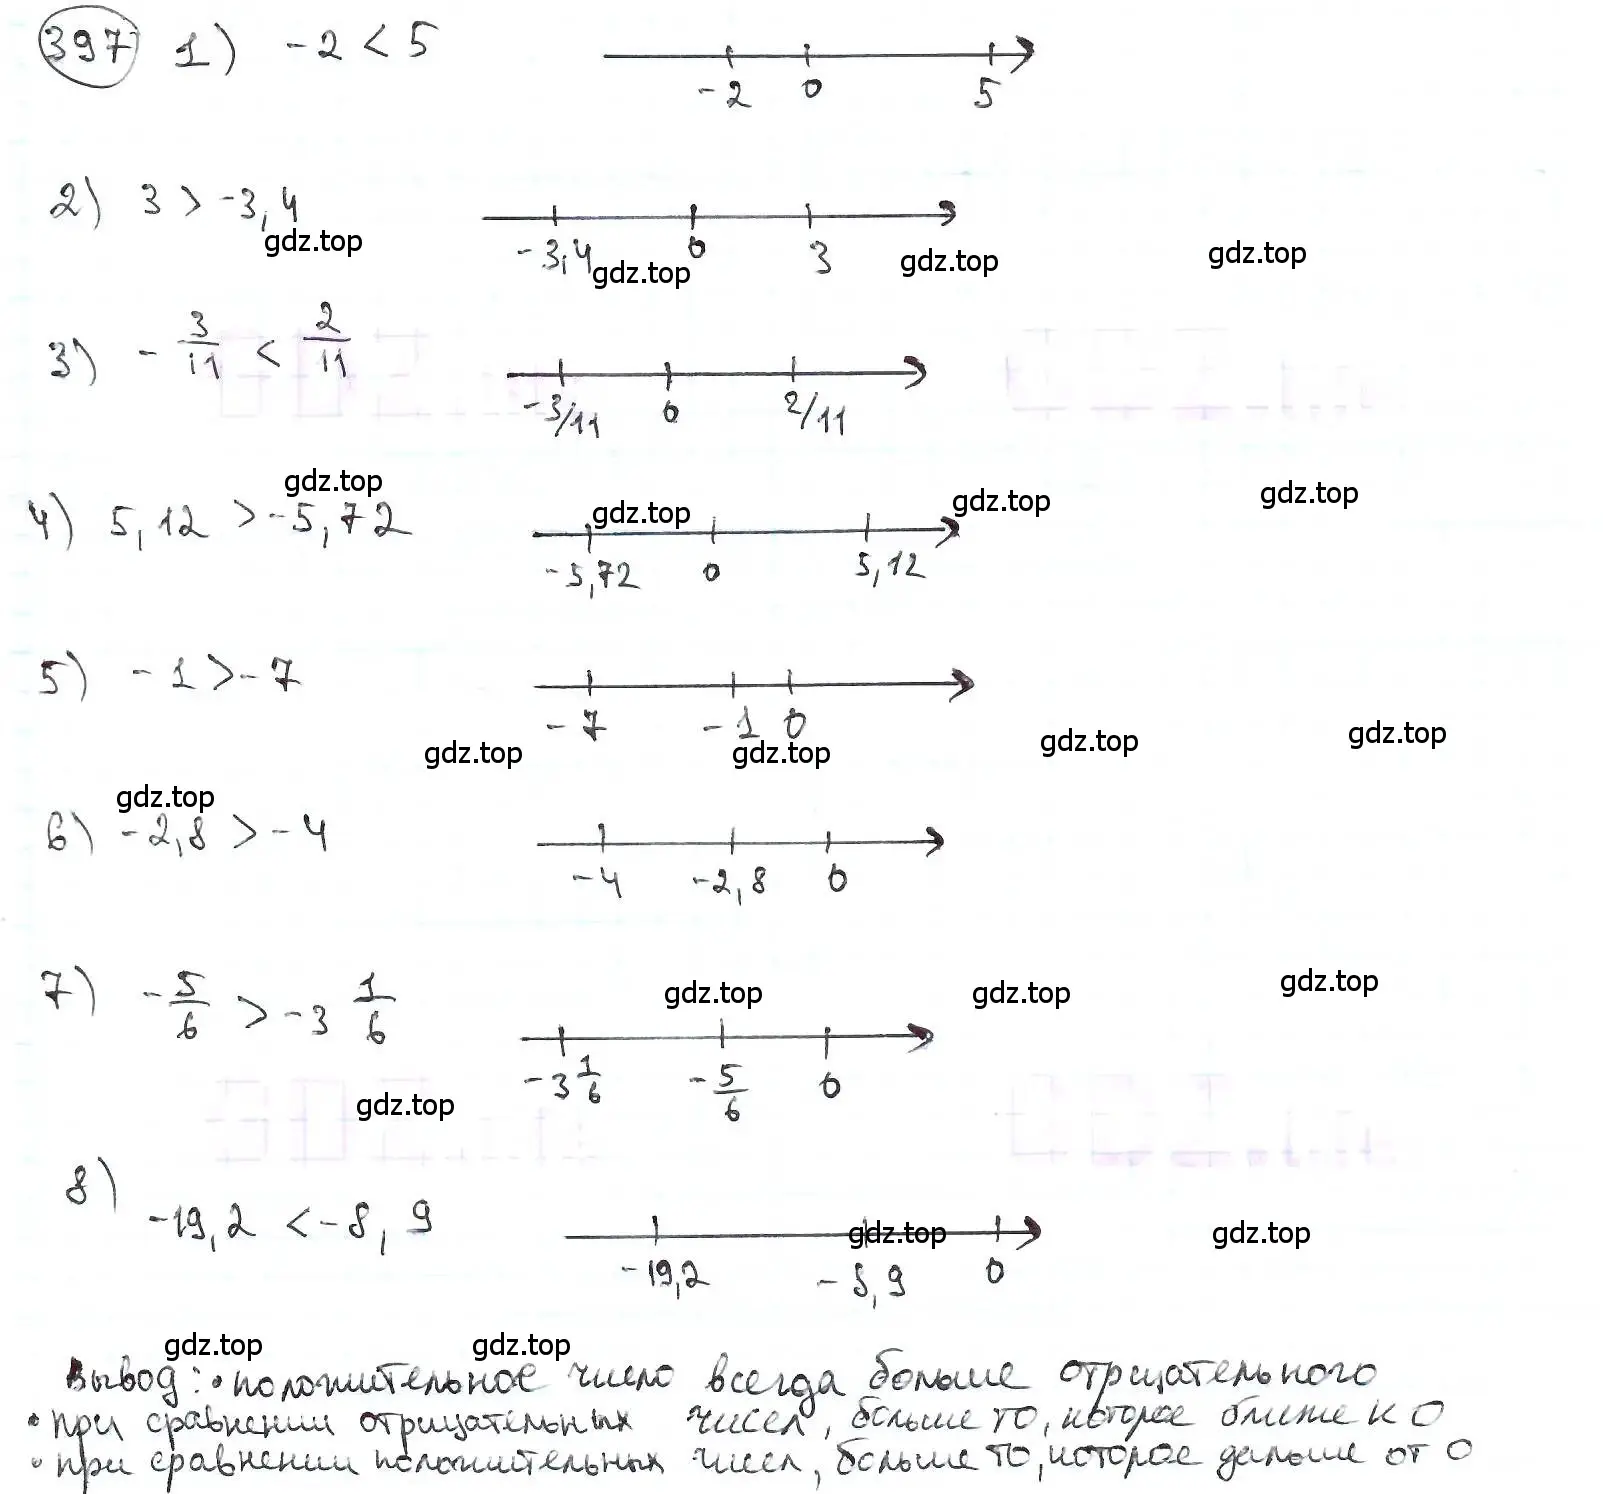 397 1) -2 < 5
-2 0 5
2) 3 > -3,4
gdz.top
-3,4 0 3
gdz.top gdz.top gdz.top
3) -3/11 < 2/11
-3/11 0 2/11
gdz.top gdz.top gdz.top gdz.top
4) 5,12 > -5,72
-5,72 0 5,12
5) -1 > -7
-7 -1 0
gdz.top gdz.top gdz.top gdz.top
gdz.top
6) -2,8 > -4
-4 -2,8 0
7) -5/6 > -3 1/6
gdz.top gdz.top gdz.top
-3 1/6 -5/6 0
gdz.top
8) -19,2 < -8,9
gdz.top gdz.top
-19,2 -8,9 0
gdz.top gdz.top
Вывод: • положительное число всегда больше отрицательного
• при сравнении отрицательных чисел, больше то, которое ближе к 0
• при сравнении положительных чисел, больше то, которое дальше от 0